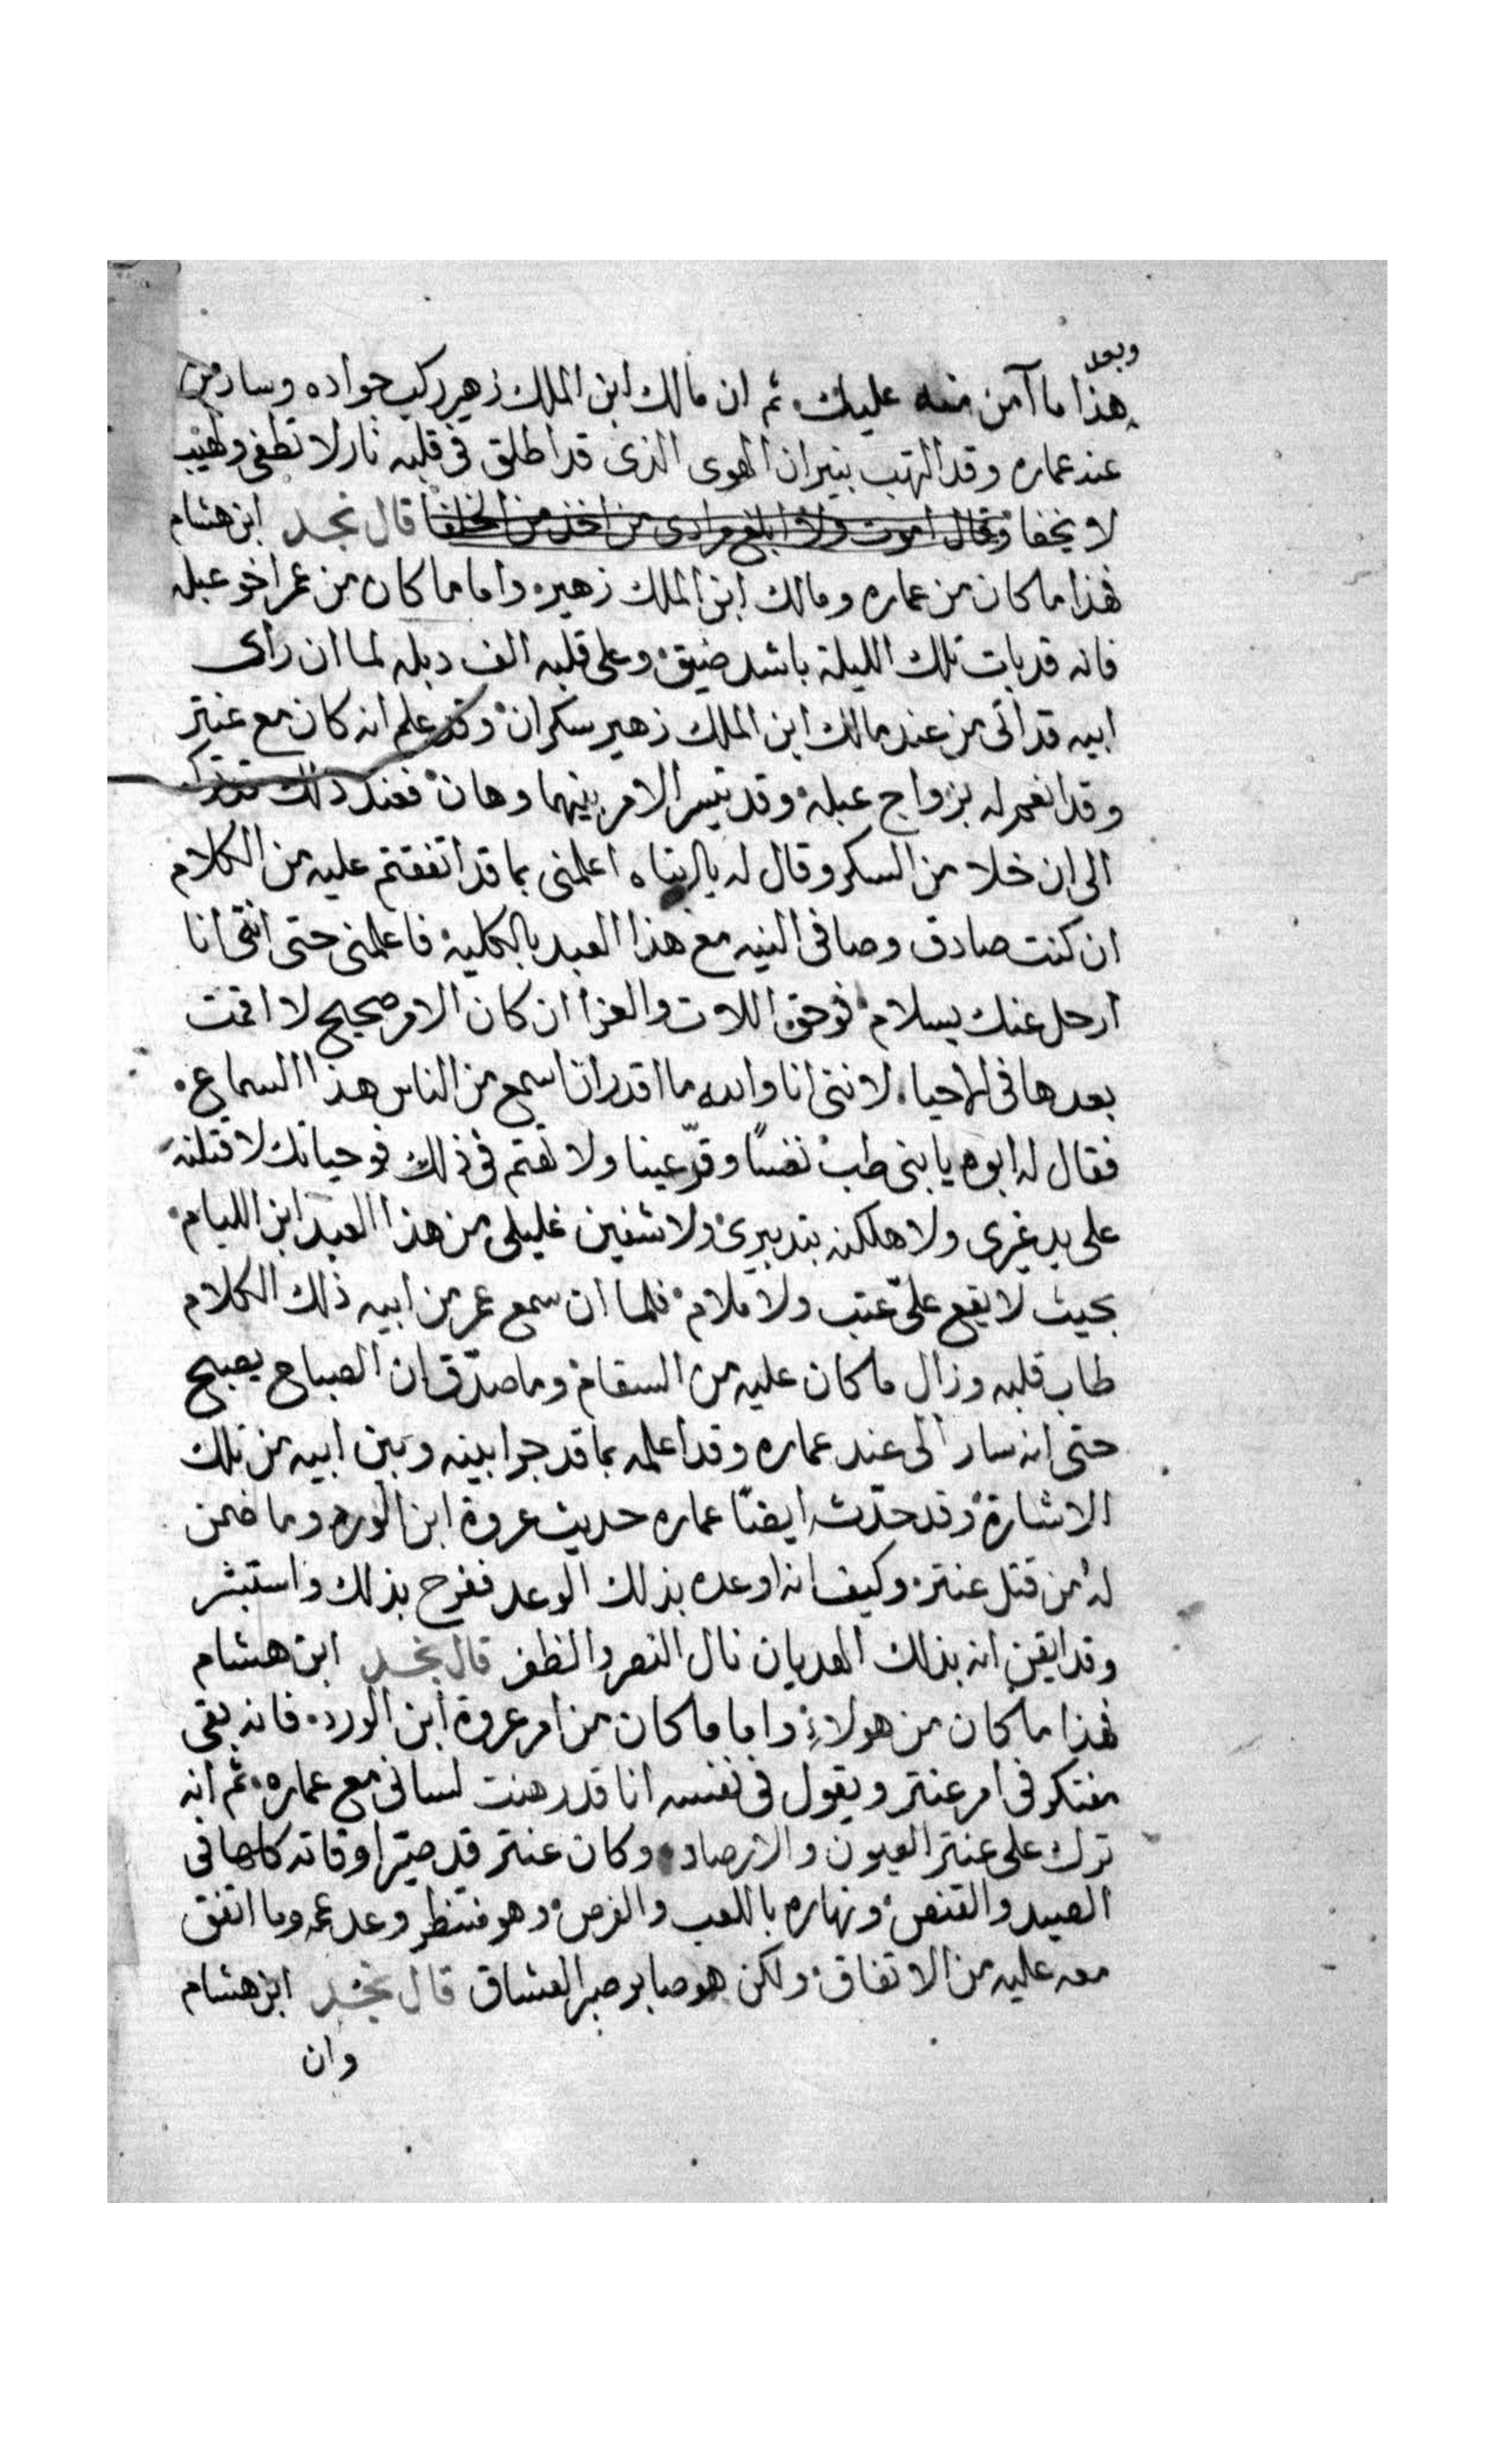 وبعد
هذا ما آمن منه عليك. ثم ان مالك ابن الملك زهير ركب جواده وسار من
عند عماره وقد التهب بنيران الهوى الذى قد اطلق فى قلبه نار لا تطفى ولهيب
لا يخفا وقال اموت ولا ابلغ مرادى من اخذ من قال نجد ابن هشام
فهذا ما كان من عماره ومالك ابن الملك زهير. واما ما كان من عمر اخو عبله
فانه قد بات تلك الليلة باشد ضيق. وعلى قلبه الف دبله لما ان راى
ابيه قد اتى من عند مالك ابن الملك زهير سكران. وقد علم انه كان مع عنتر
وقد انعم له بزواج عبله. وقد تيسر الامر بينهما وهان. فعند ذلك
الى ان خلا من السكر وقال له يا ابتاه اعلمنى بما قد اتفقتم عليه من الكلام
ان كنت صادق وصافى النيه مع هذا العبد بالكليه. فاعلمنى حتى اننى انا
ارحل عنك بسلام. فوحق اللات والعزا ان كان الامر صحيح لا اقمت
بعدها فى الاحيا. لاننى انا والله ما اقدر انا اسمع من الناس هذا السماع.
فقال له ابوه يا بنى طب نفسًا وقرّ عينا ولا تهتم فى ذلك فوحياتك لاقتلنه
على يد غيرى ولاهلكنه بتدبيرى. ولاشفين غليلى من هذا العبد ابن الليام.
بحيث لا يقع علىّ عتب ولا ملام. فلما ان سمع عمر من ابيه ذلك الكلام
طاب قلبه وزال ما كان عليه من السقام. وما صدّق ان الصباح يصبح
حتى انه سار الى عند عماره وقد اعلمه بما قد جرا بينه وبين ابيه من تلك
الاشارة. وقد حدّثه ايضًا عماره حديث عروة ابن الورد وما ضمن
له من قتل عنتر. وكيف انه اوعده بذلك الوعد ففرح بذلك واستبشر
وقد ايقن انه بذلك الهديان نال النصر والظفر قال نجد ابن هشام
فهذا ما كان من هولاء. واما ما كان من امر عروة ابن الورد. فانه بقى
مفتكر فى امر عنتر ويقول فى نفسه انا قد رهنت لسانى مع عماره. ثم انه
ترك على عنتر العيون والارصاد. وكان عنتر قد صيّر اوقاته كلها فى
الصيد والقنص. ونهاره باللعب والفرص. وهو منتظر وعد عمه وما اتفق
معه عليه من الاتفاق. ولكن هو صابر صبر العشاق قال نجد ابن هشام
وان